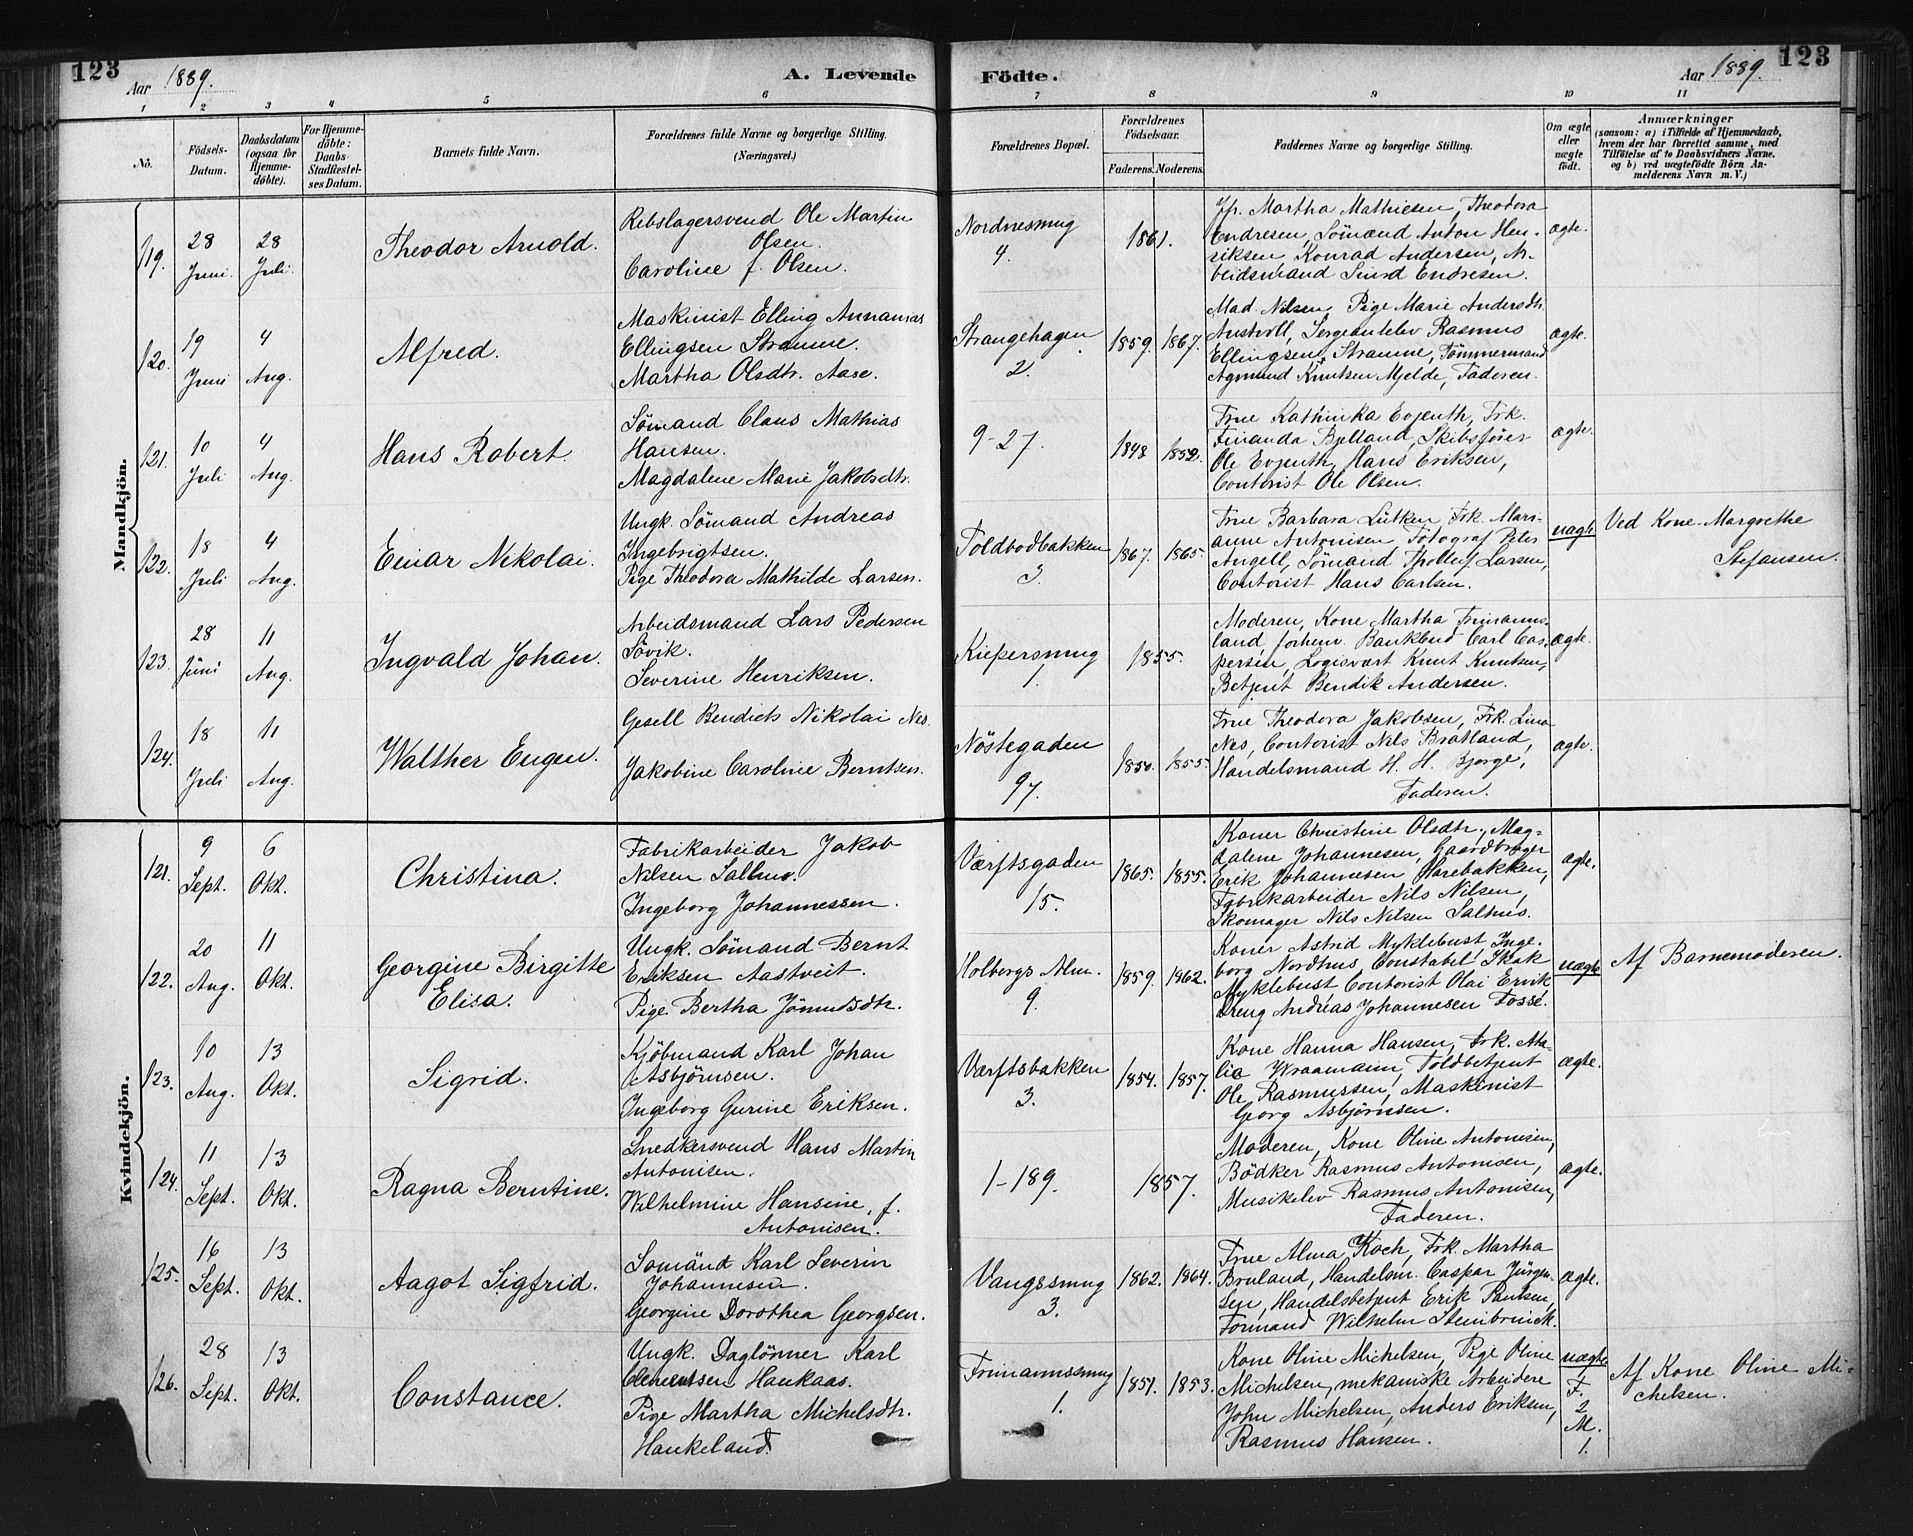 123
Aar 1889.
A. Levende
Födte.
Aar 1889.
123
1 2 3 4 5 6 7 8 9 10 11
No.
Födsels-
Datum.
Daabsdatum
(ogsaa for
Hjemme-
döbte).
For Hjemme-
döbte:
Daabs-
Stadfæstel-
ses Datum.
Barnets fulde Navn.
Forældrenes fulde Navne og borgerlige Stilling.
(Næringsvei.)
Forældrenes Bopæl.
Forældrenes
Födselsaar.
Faderens. Moderens.
Faddernes Navne og borgerlige Stilling.
Om ægte
eller
uægte
födt.
Anmærkninger
(saasom: a) i Tilfælde af Hjemmedaab,
hvem der har forrettet samme, med
Tilföielse af to Daabsvidners Navne,
og b) ved uægtefödte Börn An-
melderens Navn m. V.)
Mandkjön.
119.
28
Juni.
28
Juli.
Theodor Arnold.
Rebslagersvend Ole Martin
Olsen.
Caroline f. Olsen.
Nordnesmug
4.
1861.
Jfr. Martha Mathiesen, Theodora
Endresen, Sömænd Anton Hen-
riksen, Konrad Andersen, Ar-
beidsmand Sivert Endresen.
ægte.
120.
19
Juni
4
Aug.
Alfred.
Maskinist Elling Annanias
Ellingsen Stramme.
Martha Olsdtr. Aase.
Strangehagen
2.
1859. 1867.
Mad. Nilsen, Pige Marie Andersdtr.
Austvoll, Sergeantelev Rasmus
Ellingsen Stramme, Tömmermand
Agmund Knutsen Mjelde, Faderen.
ægte.
121.
10
Juli
4
Aug.
Hans Robert
Sömand Claus Mathias
Hansen.
Magdalene Marie Jakobsdtr.
9-27.
1848 1852.
Frue Kathinka Evjenth, Frk.
Finanda Bjelland, Skibsförer
Ole Evjenth, Hans Eriksen,
Contorist Ole Olsen.
ægte.
122.
18
Juli
4
Aug.
Einar Nikolai.
Ungk. Sömand Andreas
Ingebrigtsen.
Pige Theodora Mathilde Larsen.
Toldbodbakken
3.
1867. 1865.
Frue Barbara Lütken, Frk. Mari-
anne Antonisen, Fotograf Peter
Angell, Sömand Thollef Larsen,
Contorist Hans Carlsen.
uægte
Ved Kone Margrethe
Stefansen.
123.
28
Juni
11
Aug.
Ingvald Johan.
Arbeidsmand Lars Pedersen
Sövik.
Severine Henriksen.
Kiepersmug
1.
1855.
Moderen, Kone Martha Frimanns-
land, forhenv. Bankbud Carl Cas-
persen, Logisvært Knut Knutsen,
Betjent Bendik Andersen.
ægte.
124.
18
Juli
11
Aug.
Walther Eugen.
Gesell Bendicts Nikolai Nes.
Jakobine Caroline Berntsen.
Nöstegaden
97.
1850. 1855.
Frue Theodora Jakobsen, Frk. Lina
Nes, Contorist Nils Bratland,
Handelsmand H. H. Bjorge,
Faderen.
ægte.
Kvindekjön.
121.
9
Sept.
6
Okt.
Christina.
Fabrikarbeider Jakob
Nilsen Salhus.
Ingeborg Johannessen.
Værftsgaden
15.
1865. 1855.
Koner Christine Olsdtr., Mag-
dalene Johannesen, Gaardbruger
Erik Johannesen Harebakken,
Fabrikarbeider Nils Nilsen,
Skomager Nils Nilsen Salhus.
ægte.
122.
20
Aug.
11
Okt.
Georgine Birgitte
Elisa.
Ungk. Sömand Bernt
Eriksen Aastveit.
Pige Bertha Jömundsdtr.
Holbergs Alm.
9.
1859. 1862.
Koner Astrid Myklebust, Inge-
borg Nordhus, Constabel Skak
Myklebust Contorist Olai Ervik
Dreng Andreas Johannesen Fosse.
uægte
Af Barnemoderen.
123.
10
Aug.
13
Okt.
Sigrid.
Kjöbmand Karl Johan
Asbjörnsen.
Ingeborg Gurine Eriksen.
Værftsbakken
3.
1854. 1857.
Kone Hanna Hansen, Frk. Ama-
lie Wraamann, Toldbetjent
Ole Rasmussen, Maskinist
Georg Asbjörnsen.
ægte.
124.
11
Sept.
13
Okt.
Ragna Berntine.
Snedkersvend Hans Martin
Antonisen.
Wilhelmine Hansine, f.
Antonisen.
1-189.
1857.
Moderen, Kone Oline Antonisen,
Bödker Rasmus Antonisen,
Musikelev Rasmus Antonisen,
Faderen.
ægte.
125.
16
Sept.
13
Okt.
Aagot Sigfrid.
Somand Karl Severin
Johannesen.
Georgine Dorothea Georgsen.
Vangssmug
3.
1862. 1864.
Frue Alma Koch, Frk. Martha
Bruland, Handelsm. Caspar Jürgen-
sen, Handelsbetjent Erik Paulsen,
Formand Wilhelm Steinbrinck.
ægte.
126.
28
Sept.
13
Okt.
Constance.
Ungk. Daglönner Karl
Clementsen Haukaas.
Pige Martha Michelsdtr.
Haukeland.
Frimannssmug
1.
1851. 1853.
Kone Oline Michelsen, Pige Oline
Michelsen, mekaniske Arbeidere
John Michelsen, Anders Eriksen,
Rasmus Hansen.
uægte
F.
2
M.
1.
Af Kone Oline Mi-
chelsen.